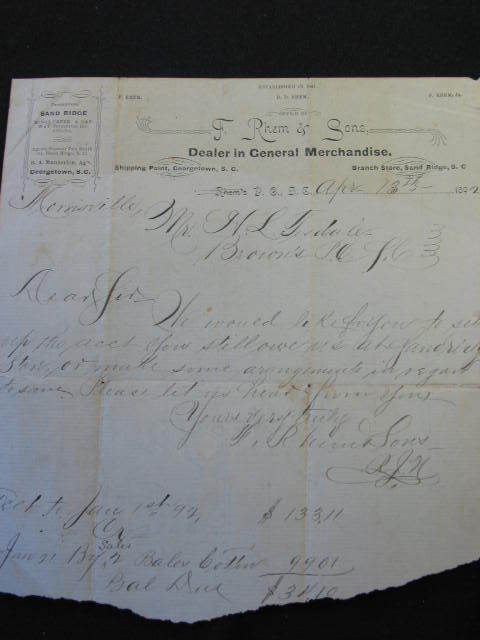 ESTABLISHED IN 1841
F. RHEM. D. D. RHEM. F. RHEM, Jr.
OFFICE OF
F. Rhem & Sons,
Dealer in General Merchandise.
SAND RIDGE
Georgetown, S.C.
Shipping Point, Georgetown, S. C. Branch Store, Sand Ridge, S. C
Rhem's P. O., S. C., Apr 13th 1892
Morrisville,
Mr. H L Tisdale
Brown's P.O. S.C.
Dear Sir
We would like for you to set
up the acct you still owe us at Sandridge
Store, or make some arangements in regard
to same Please let us hear from you
Yours Very truly
F. Rhem & Sons
Acct to Jany 1st 92, $ 133,11
Cr
Sales
Jan'y By 2 Bales Cotton 99,01
Bal Due $34,10